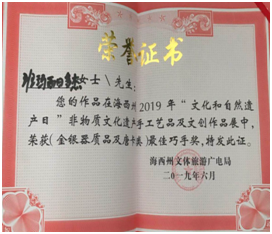 荣誉证书
女士\先生:
您的作品在海西州2019年“文化和自然遗
产日”非物质文化遗产手工艺品及文创作品展中,
荣获(金银器质品及唐卡类)最佳巧手奖,特发此证。
海西州文体旅游广电局
二〇一九年六月